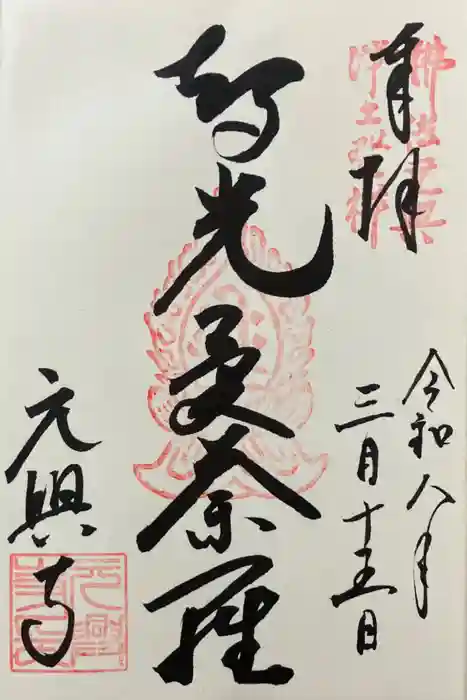 奉拝
佛法元興
浄土職
令和八年
三月十五日
智光曼荼羅
元興寺